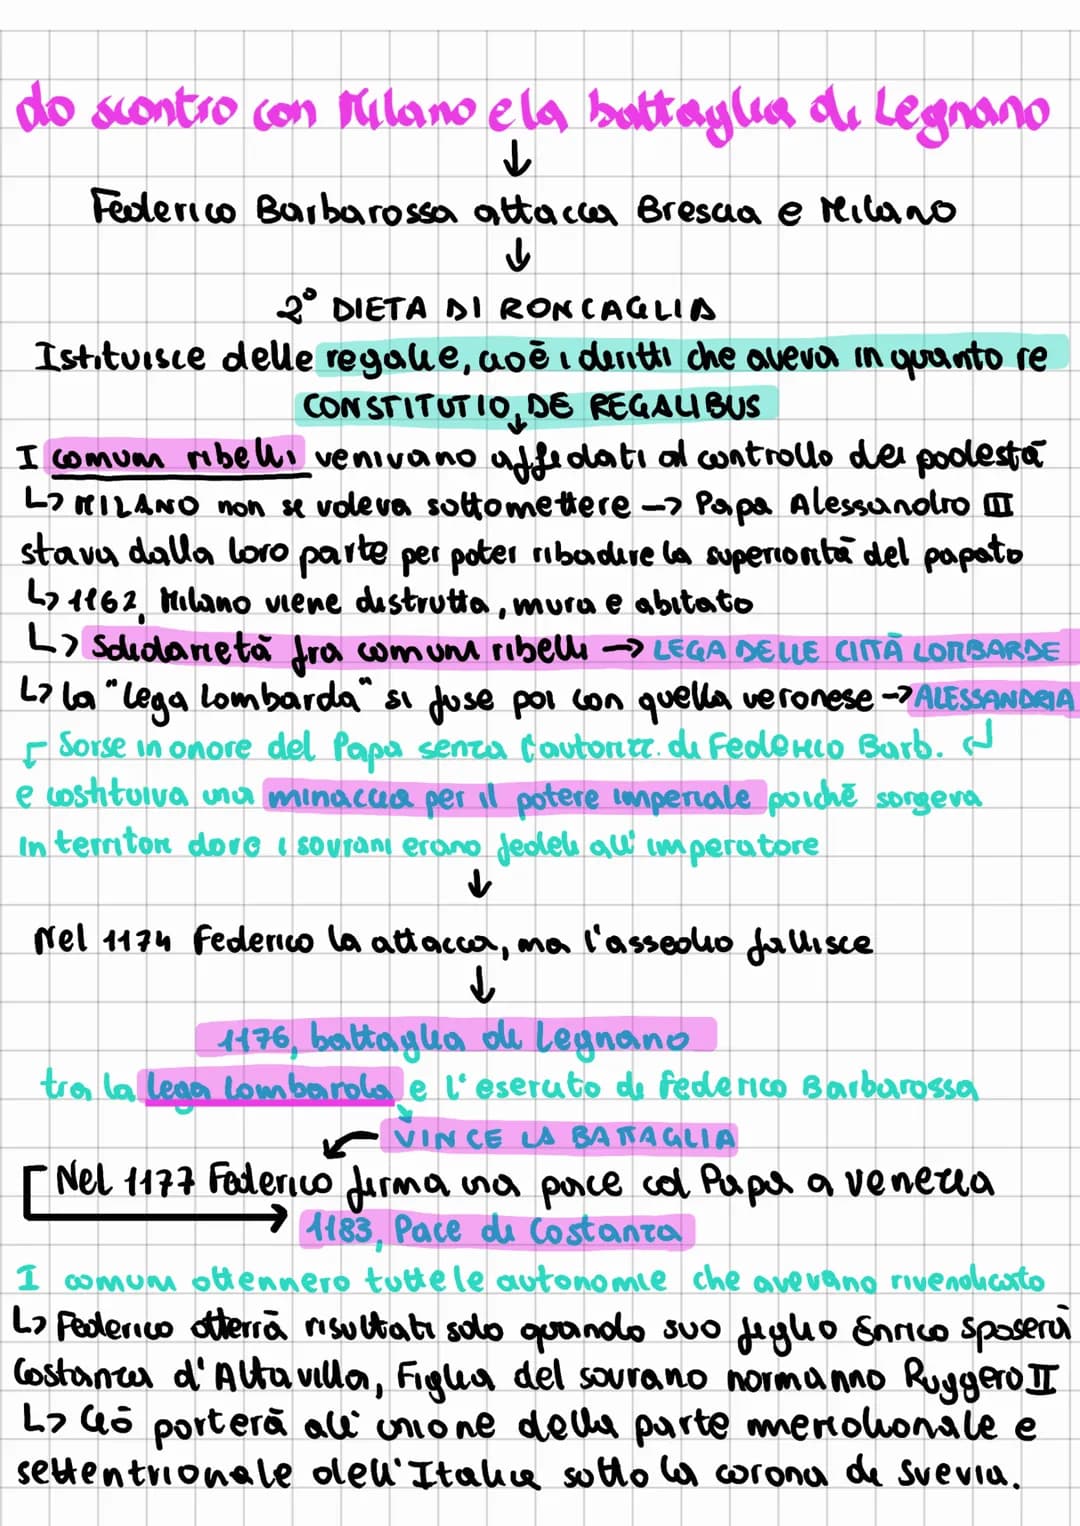 Lo scontro con Milano e la battaglia di Legnano
↓
Federico Barbarossa attacca Brescia e Milano
↓
2° DIETA DI RONCAGLIA
Istituisce delle regalie, cioè i diritti che aveva in quanto re
CONSTITUTIO DE REGALIBUS
↓
I comuni ribelli venivano affidati al controllo dei podestà
↳ MILANO non si voleva sottomettere → Papa Alessandro III
stava dalla loro parte per poter ribadire la superiorità del papato
↳ 1162, Milano viene distrutta, mura e abitato
↳ Solidarietà fra comuni ribelli → LEGA DELLE CITTÀ LOMBARDE
↳ la "lega Lombarda" si fuse poi con quella veronese → ALESSANDRIA
Sorse in onore del Papa senza l'autorizz. di Federico Barb.
e costituiva una minaccia per il potere imperiale poichè sorgeva
in territori dove i sovrani erano fedeli all'imperatore
↓
Nel 1174 Federico la attacca, ma l'assedio fallisce
↓
1176, battaglia di Legnano
tra la lega Lombarda e l'esercito di Federico Barbarossa
VINCE LA BATTAGLIA
Nel 1177 Federico firma una pace col Papa a Venezia
1183, Pace di Costanza
I comuni ottennero tutte le autonomie che avevano rivendicato
↳ Federico otterrà risultati solo quando suo figlio Enrico sposerà
Costanza d'Altavilla, Figlia del sovrano normanno Ruggero II
↳ Ciò porterà all'unione della parte meridionale e
settentrionale dell'Italia sotto la corona di Svevia.